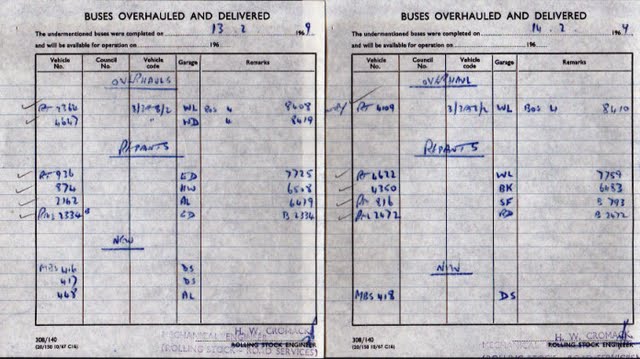 BUSES OVERHAULED AND DELIVERED
The undermentioned buses were completed on 13 . 2 196 9
and will be available for operation on 196
Vehicle No. Council No. Vehicle code Garage Remarks
OVERHAULS
RT 2260 3/2RT3/2 WL Box 4 8408
4647 " ND 4 8419
REPAINTS
RT 936 ED 7725
874 HW 6508
2162 AL 6679
RML 2334 ED B 2334
NEW
MBS 416 DS
417 DS
468 AL
308/140
(20/150 10/67 G16)
H. W. CROMACK
MECHANICAL ENGINEER
ROLLING STOCK ENGINEER
(ROLLING STOCK - ROAD SERVICES)
BUSES OVERHAULED AND DELIVERED
The undermentioned buses were completed on 14 . 2 . 196 9
and will be available for operation on 196
Vehicle No. Council No. Vehicle code Garage Remarks
OVERHAUL
RT 4109 3/2RT3/2 WL Box 4 8410
REPAINTS
RT 4622 WL 7759
4350 BK 6683
RF 816 SF B 793
RML 2472 B 2472
NEW
MBS 418 DS
308/140
(20/150 10/67 G16)
H. W. CROMACK
MECHANICAL
ROLLING STOCK ENGINEER
(ROLLING STOCK - ROAD SERVICES)